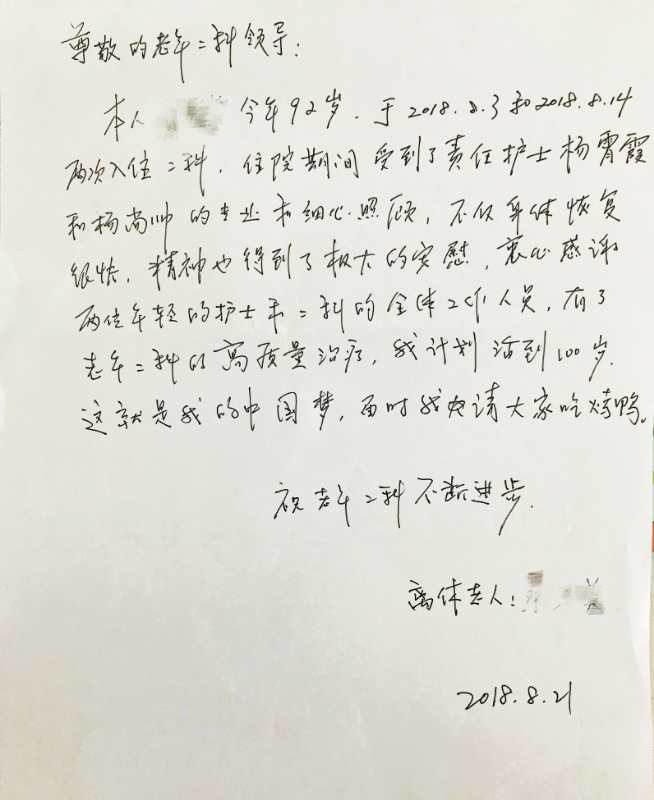 尊敬的老年二科领导：
本人 今年92岁，于2018.8.3和2018.8.14
两次入住二科，住院期间受到了责任护士杨霄霞
和杨尚帅的专业和细心照顾，不仅身体恢复
很快，精神也得到了极大的安慰，衷心感谢
两位年轻的护士和二科的全体工作人员，有了
老年二科的高质量治疗，我计划活到100岁，
这就是我的中国梦，届时我友请大家吃烤鸭。
祝老年二科不断进步。
离休老人：
2018.8.21